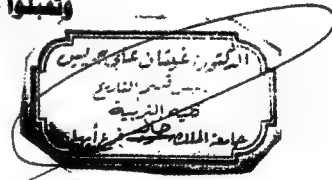 وتقبلوا
الدكتور: غيثان علي جريس
رئيس قسم التاريخ
كلية التربية
جامعة الملك خالد فرع أبها